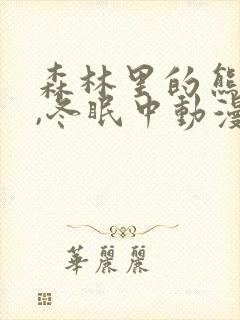 森林里的熊
,冬眠中动漫
華麗麗